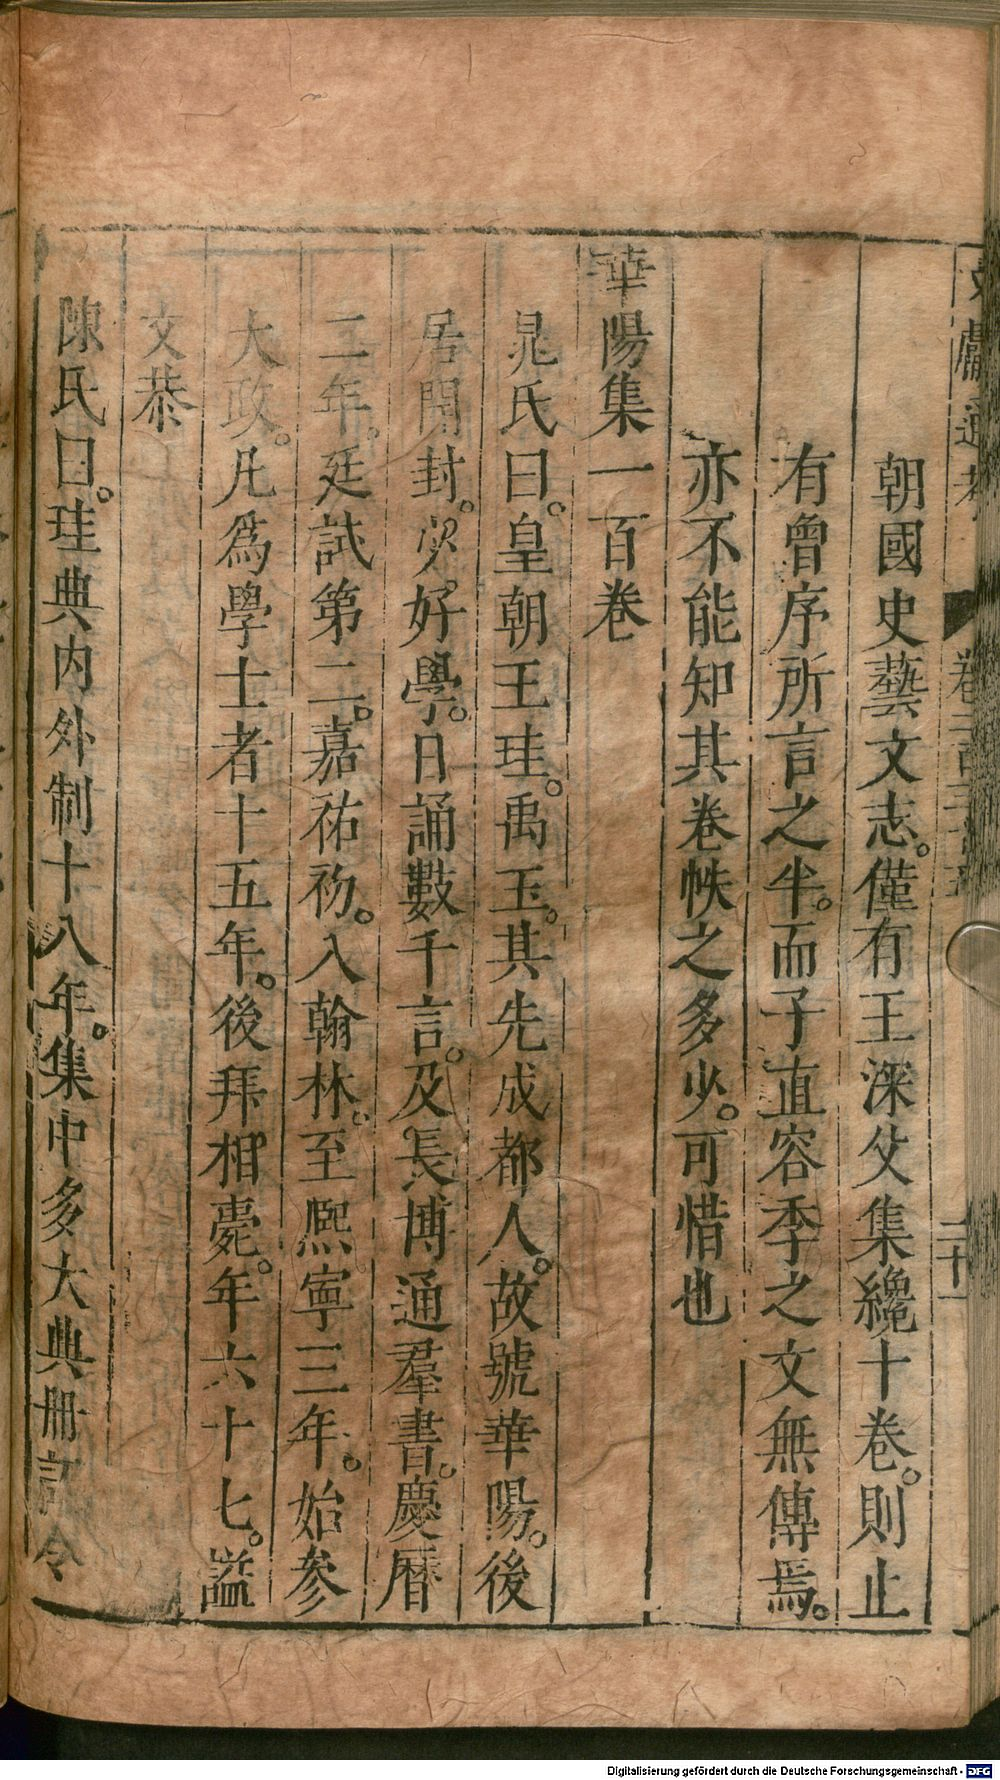 文獻通考 卷二百三十五 二十一
朝國史藝文志。僅有王深父集纔十卷。則止
有曾序所言之半。而子直容季之文無傳焉。
亦不能知其卷帙之多少。可惜也
華陽集一百卷
晁氏曰。皇朝王珪。禹玉。其先成都人。故號華陽。後
居開封。少好學。日誦數千言。及長博通羣書。慶曆
二年。廷試第二。嘉祐初。入翰林。至熙寧三年。始參
大政。凡爲學士者十五年。後拜相薨。年六十七。謚
文恭
陳氏曰。珪典內外制十八年。集中多大典冊詔令
Digitalisierung gefördert durch die Deutsche Forschungsgemeinschaft - DFG